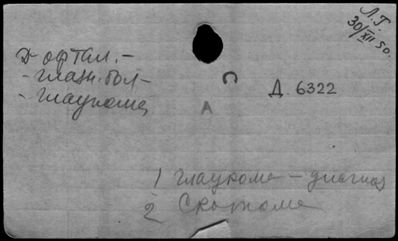 Л.Г.
30/XII 50.
Д- офтал. -
- глазн. бол -
- глаукома
С
Д. 6322
А
1 глаукома - диагноз
2 Скотома